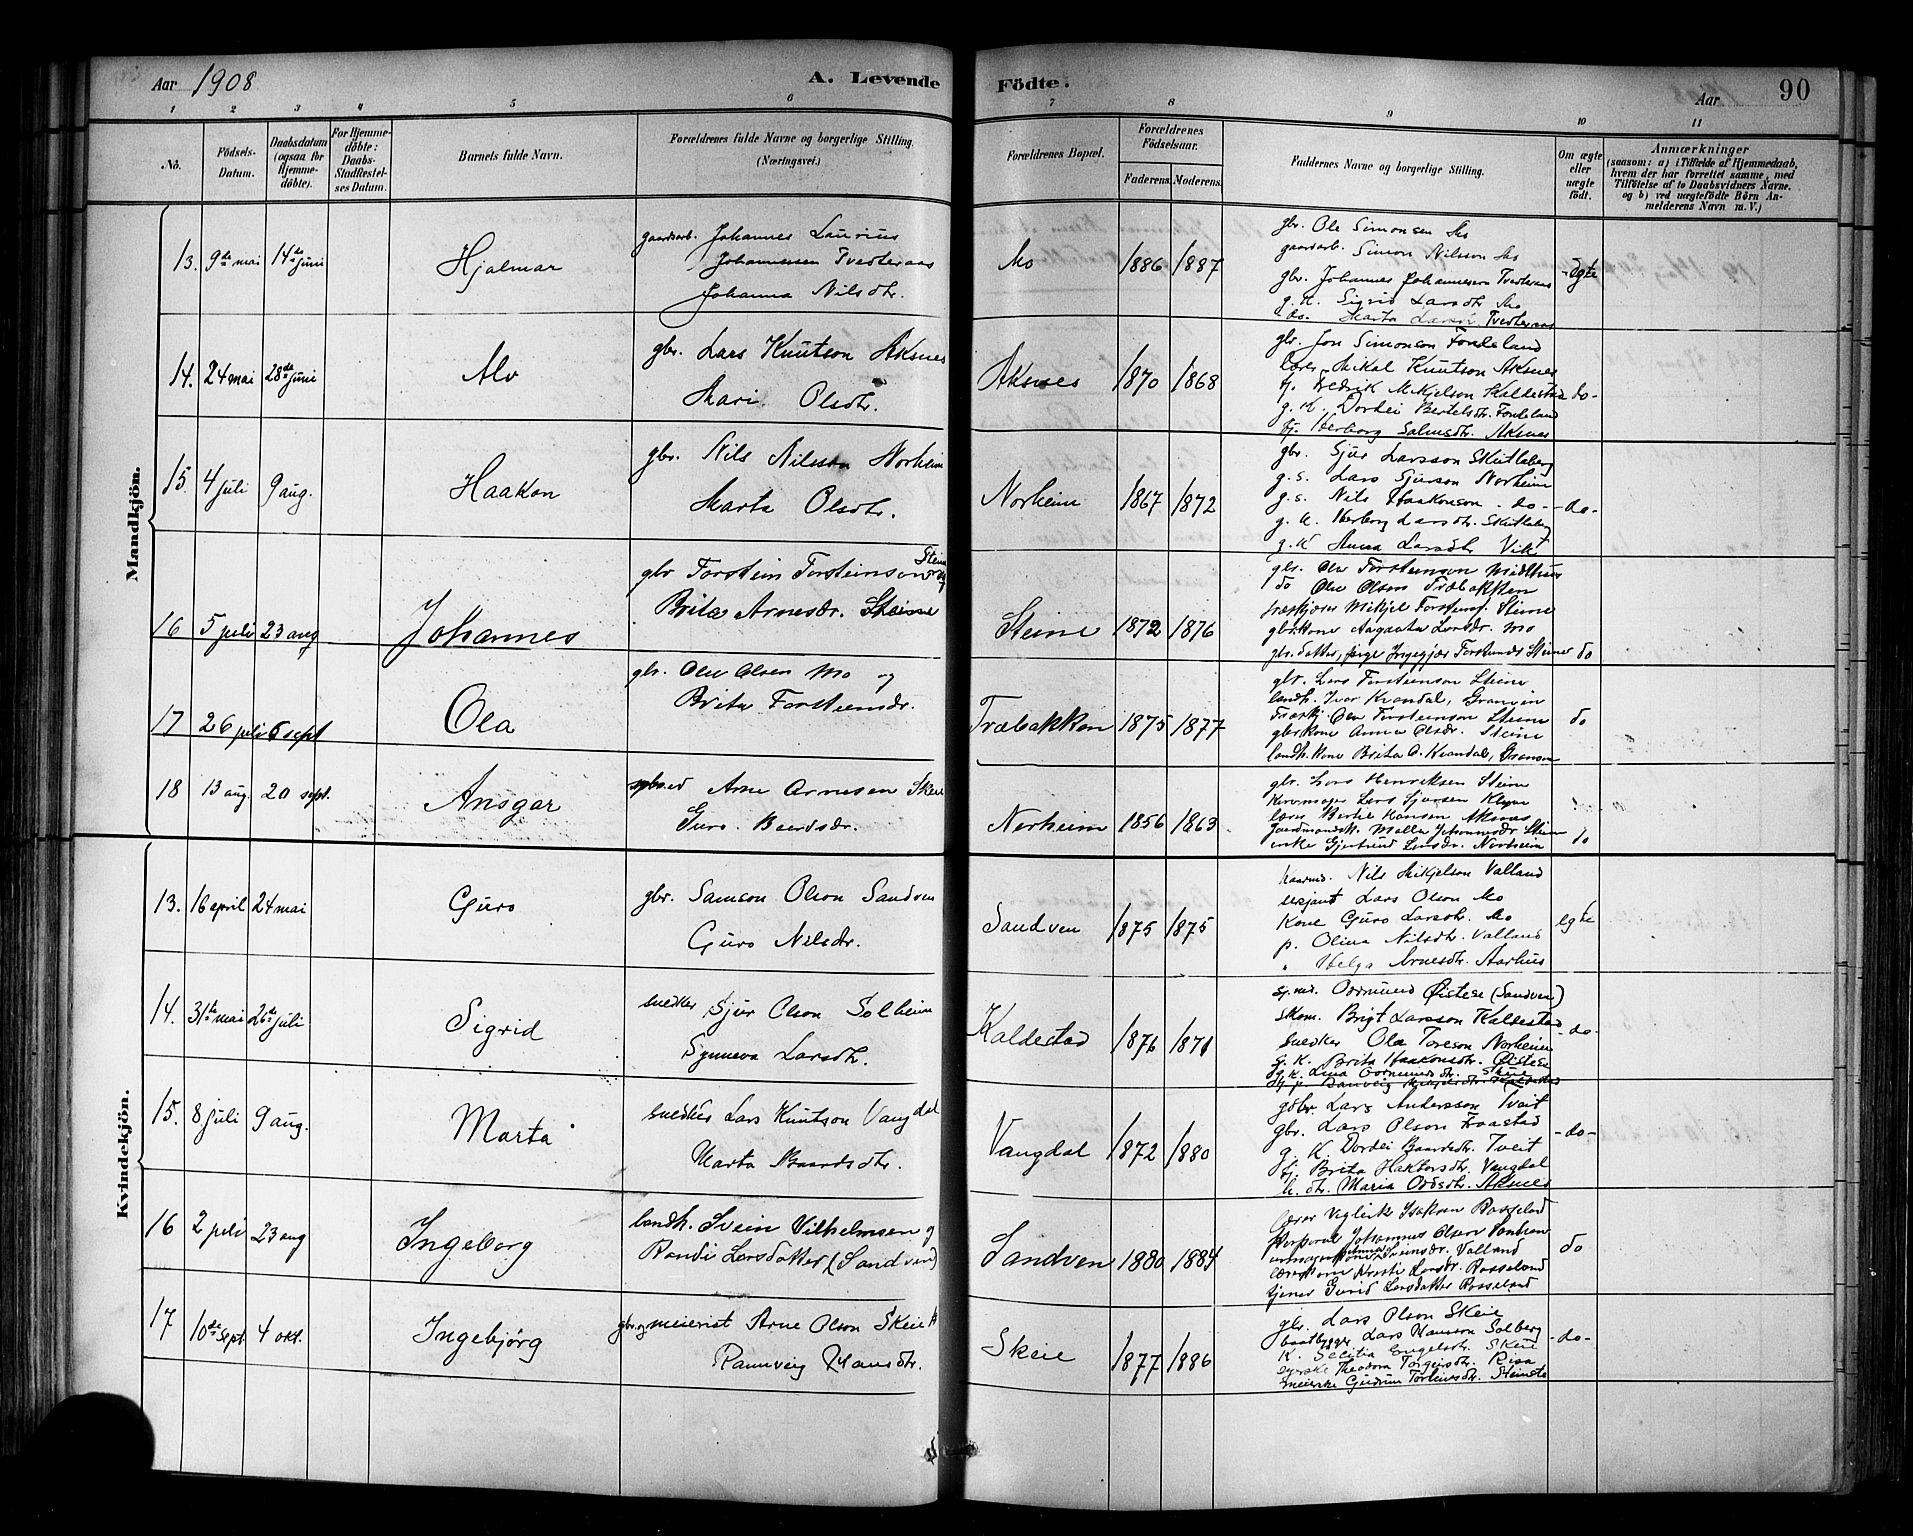 Aar 1908
A. Levende
Födte.
Aar
90
1 2 3 4 5 6 7 8 9 10 11
No.
Födsels-Datum.
Daabsdatum (ogsaa for Hjemme-döbte).
For Hjemme-döbte: Daabs-Stadfæstel-ses Datum.
Barnets fulde Navn.
Forældrenes fulde Navne og borgerlige Stilling. (Næringsvei.)
Forældrenes Bopæl.
Forældrenes Födselsaar.
Faderens. Moderens.
Faddernes Navne og borgerlige Stilling.
Om ægte eller uægte födt.
Anmærkninger
(saasom: a) i Tilfælde af Hjemmedaab,
hvem der har forrettet samme, med
Tilföielse af to Daabsvidners Navne.
og b) ved uægtefödte Börn An-
melderens Navn m. V.)
Mandkjön.
13. 9de mai 14de juni
Hjalmar
gaardarb. Johannes Laurius
Johannessen Tvedteraas
Johanna Nilsdtr.
Mo 1886 1887
gbr. Ole Simonsen Mo
gaardarb. Simon Nilsson Mo
gbr. Johannes Johannessen Tvedteraas
g. k. Sigrid Larsdtr Mo
do. Marta Larsdtr Tvedteraas
ægte
14. 24 mai 28de juni
Alv
gbr. Lars Knutson Aksnes
Mari Olsdtr.
Aksnes 1870 1868
gbr. Jon Simonson Fondeland
Lærer Mikal Knutson Aksnes
tj. Fredrik Mikjelson Kaldestad
g. K. Dordei Bertelsdtr. Fondeland
tj. Herborg Salmsdtr. Aksnes
do-
15. 4 juli 9 aug.
Haakon
gbr. Nils Nilsson Norheim
Marta Olsdtr.
Norheim 1867 1872
gbr. Sjur Larsson Skutleberg
g. s. Lars Sjurson Norheim
g. s. Nils Haakonson - do-
g. k. Herborg Larsdtr. Skutleberg
g. K Anna Larsdtr Vik
-do-
16 5 juli 23 aug
Johannes
gbr Torstein Torsteinson Steine og
Brita Arnesdr. Steine
Steine 1872 1876
gbr. Ole Torsteinson Midthus
do Ole Olsen Træbakken
træskjærer Mikjel Torsteins. Steine
gbr.kone Aagaata Larsdr. Mo
gbr. datter, pige Ingegjær Torsteinsdr Steine
do
17 26 juli 6 sept
Ola
gbr. Ole Olsen Mo og
Brita Torsteinsdr.
Træbakken 1875 1877
gbr. Lars Torsteinson Steine
landh. Ivar Kvandal, Granvin
Træskj. Ole Torsteinson Steine
gbrkone Anna Olsdr. Steine
landh. kone Brita O. Kvandal, Granvin
do
18 13 aug. 20 sept.
Ansgar
Arne Arnesen Skeie
Guro Baardsdr.
Norheim 1856 1863
gbr. Lars Henriksen Steine
Lars Sjursen
lærer Bertil Hansen Aksnes
Gaardmandsk. Malla Johannesdr Steine
enke Gjertrud Larsdr. Nordheim
do
Kvindekjön.
13. 16 april 24 mai
Guro
gbr. Samson Olson Sandven
Guro Nilsdtr.
Sandven 1875 1875
kaarmd. Nils Mikjelson Valland
sersjant Lars Olson Mo
Kone Guro Larsdtr. Mo
p. Olina Nilsdtr. Valland
" Helga Arnesdtr. Aarhus
egte
14. 31te mai 26de juli
Sigrid
snedker Sjur Olson Solheim
Synneva Larsdtr.
Kaldestad 1876 1871
gj.md. Ormund Øistese (Sandven)
Skom. Brigt Larsson Kaldestad
snedker Ola Toreson Norheim
g. K. Brita Haakonsdtr. Øistese
g. K. Lina Ormundsdtr. Skeie
-do-
15. 8 juli 9 aug.
Marta
snedker Lars Knutson Vangdal
Marta Baardsdtr.
Vangdal 1872 1880
gbr. Lars Andersson Tveit
gbr. Lars Olson Fraastad
g. K. Dordei Baardsdtr. Tveit
tj. Brita Haktorsdtr. Vangdal
h. dtr. Maria Oddsdtr. Aksnes
-do-
16 2 juli 23 aug
Ingeborg
landh. Svein Vilhelmsen og
Randi Larsdatter (Sandven)
Sandven 1880 1884
Lærer Isaksen Rosseland
Korporal Johannes Olsen Sandven
Sveinsdr. Valland
lærerkone Kristi Larsdr. Rosseland
tjener Gurid Larsdatter Rosseland
do
17 10de Sept. 4 okt.
Ingebjörg
gbr. og meierist Arne Olson Skeie
Rannveig Hansdtr.
Skeie 1877 1886
gbr. Lars Olson Skeie
baatbygger Lars Hansson Solberg
K. Secilia Engelsdtr. Skeie
syerske Theodora Torgeirsdtr. Risa
meierske Gudrun Torleivsdtr. Steinstø
-do-